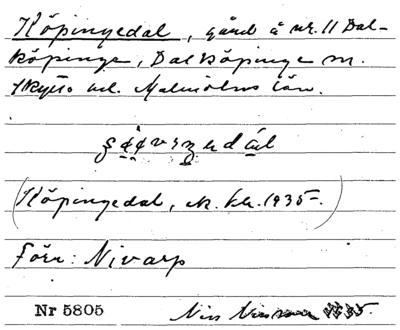 Köpingedal, gård å nr. 11 Dal-
köpinge, Dalköpinge sn.
Skytts hd. Malmöhus län.
(Köpingedal, ek. kk. 1935.)
Förn: Nivarp
Nr 5805 Nils